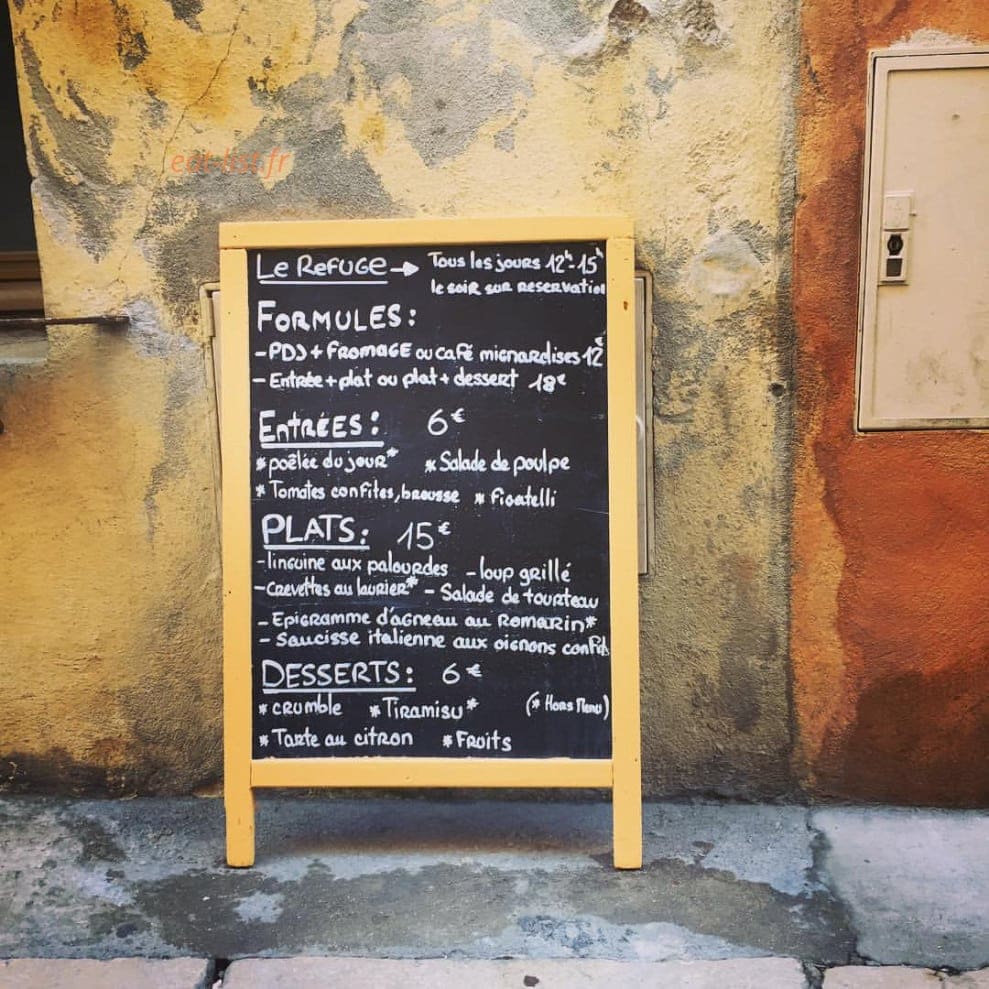 eat-list.fr
Le Refuge → Tous les jours 12h-15h
le soir sur reservation
FORMULES:
-PDJ + FROMAGE ou café mignardises 12€
- Entrée + plat ou plat + dessert 18€
EntRÉES: 6€
* poêlée du jour* * Salade de poulpe
* Tomates confites, brousse * Figatelli
PLATS: 15€
-linguine aux palourdes -loup grillé
-Crevettes au laurier* - Salade de tourteau
- Epigramme d'agneau au Romarin*
- Saucisse italienne aux oignons confits
DESSERTS: 6€
* crumble * Tiramisu* (* Hors Menu)
* Tarte au citron * Fruits